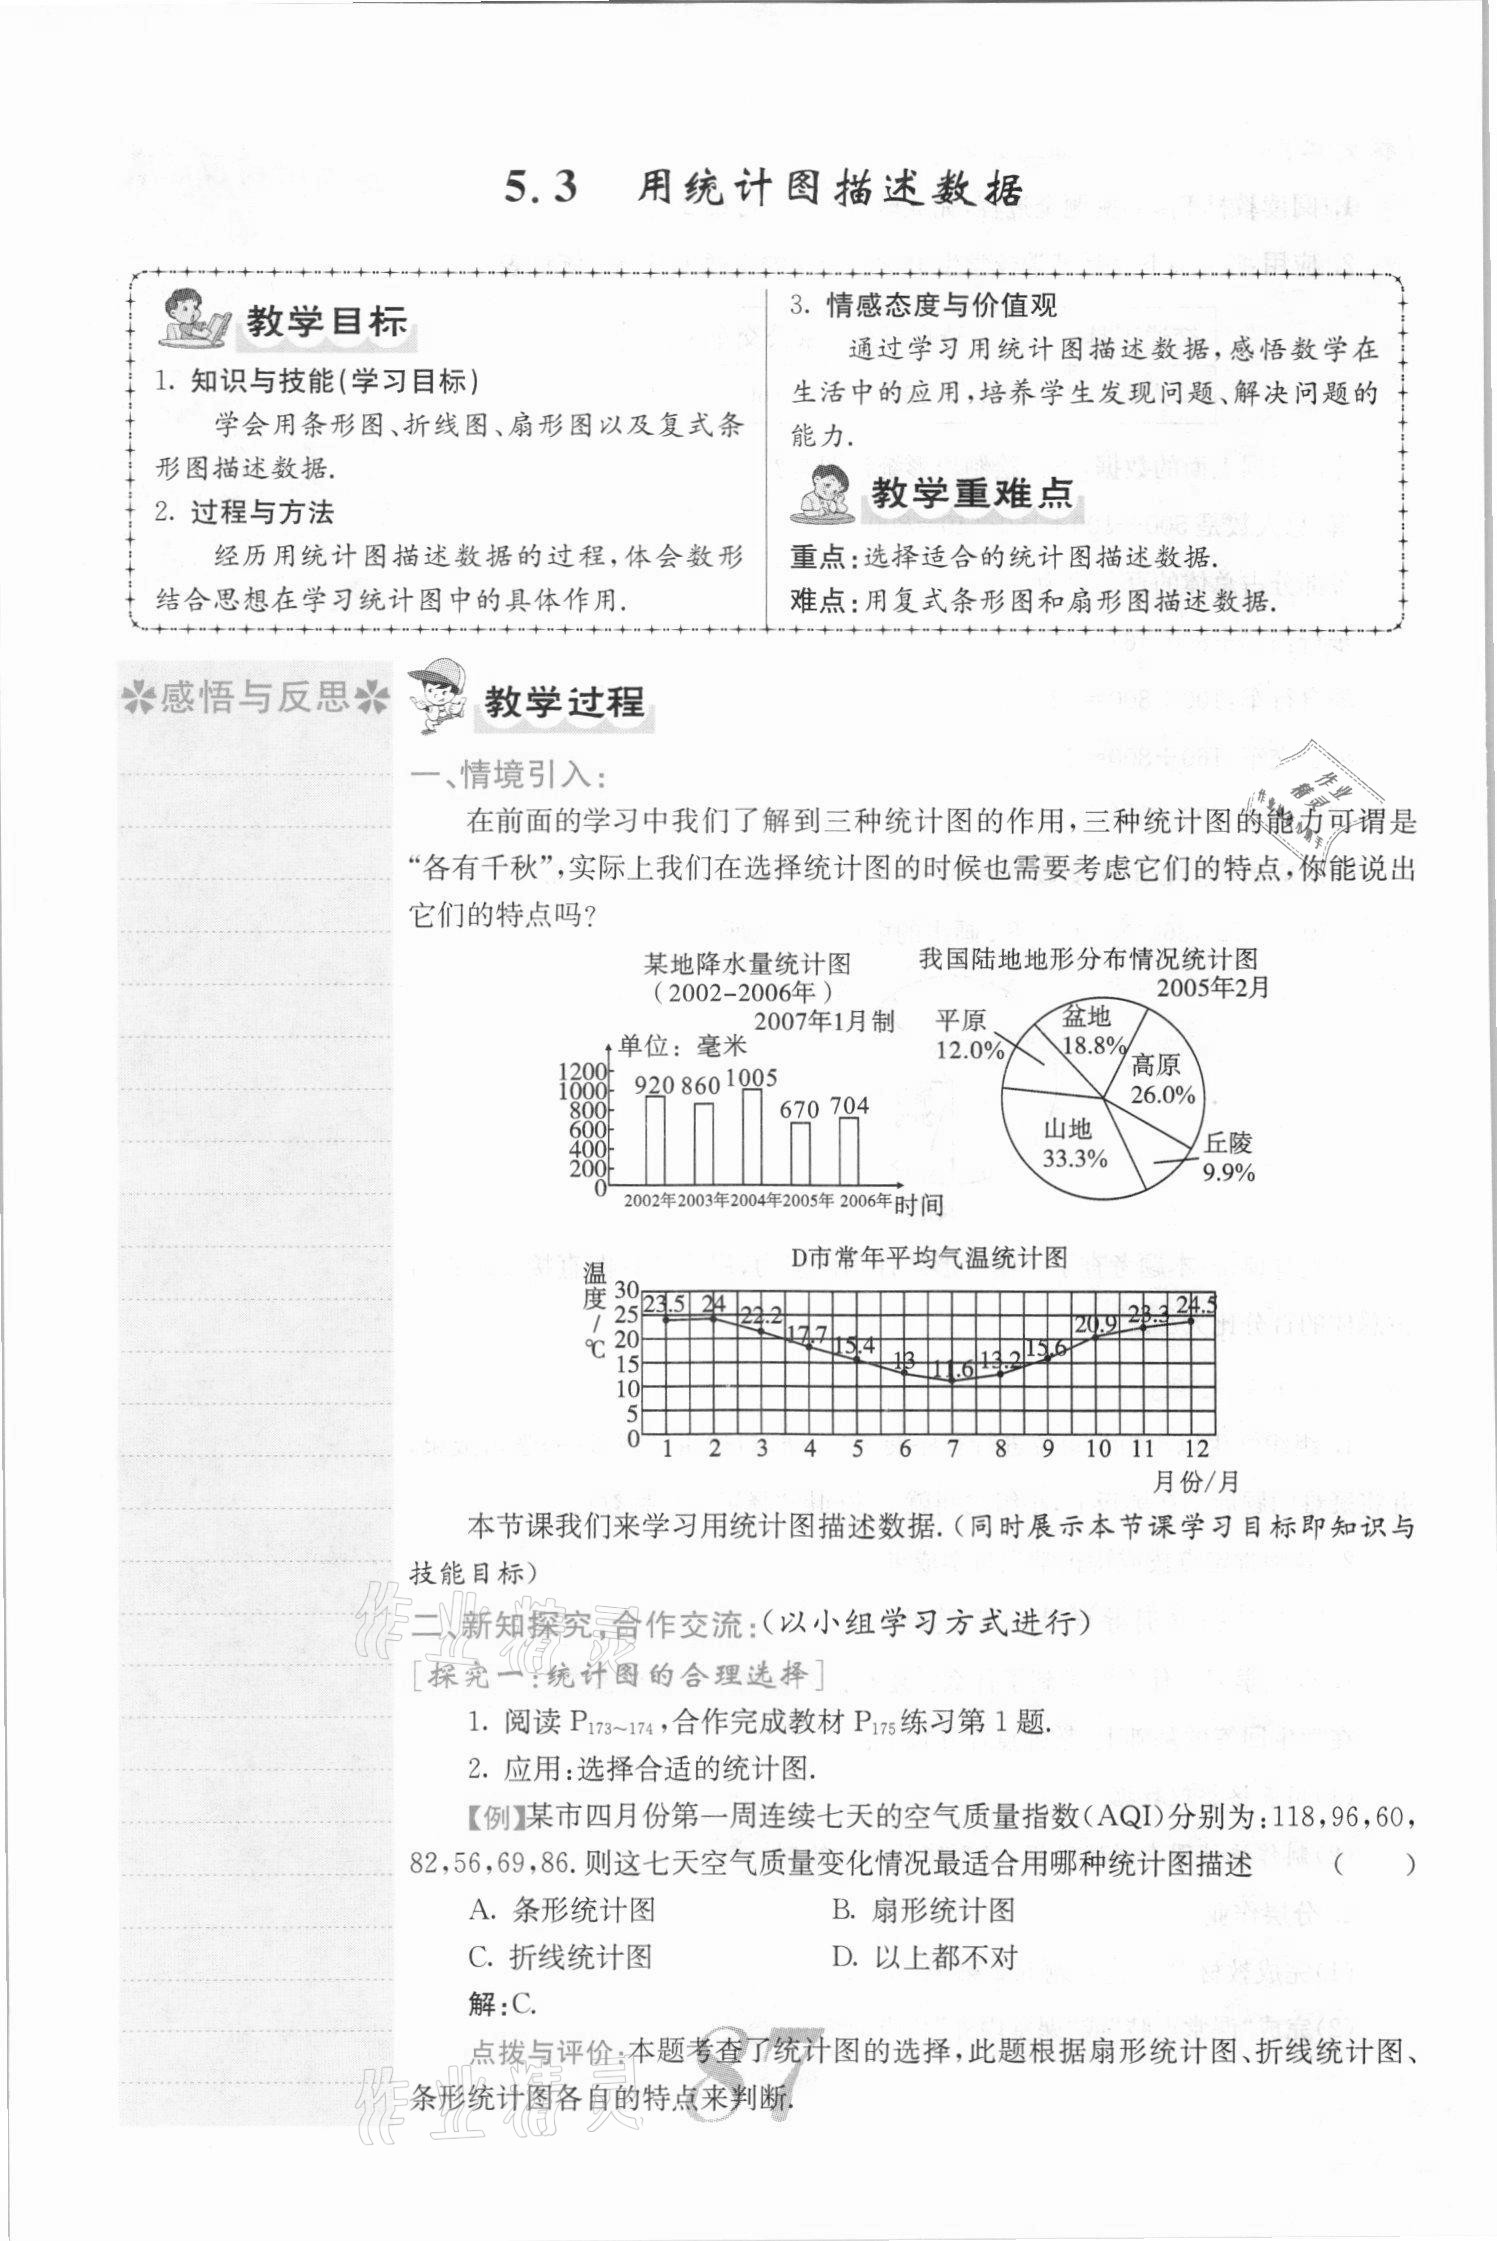 5.3 用统计图描述数据
教学目标
1. 知识与技能(学习目标)
学会用条形图、折线图、扇形图以及复式条
形图描述数据.
2. 过程与方法
经历用统计图描述数据的过程,体会数形
结合思想在学习统计图中的具体作用.
3. 情感态度与价值观
通过学习用统计图描述数据,感悟数学在
生活中的应用,培养学生发现问题、解决问题的
能力.
教学重难点
重点:选择适合的统计图描述数据.
难点:用复式条形图和扇形图描述数据.
感悟与反思
教学过程
一、情境引入:
在前面的学习中我们了解到三种统计图的作用,三种统计图的能力可谓是
“各有千秋”,实际上我们在选择统计图的时候也需要考虑它们的特点,你能说出
它们的特点吗?
某地降水量统计图
(2002-2006年)
2007年1月制
单位：毫米
1200
1000
800
600
400
200
0
920 860 1005 670 704
2002年 2003年 2004年 2005年 2006年 时间
我国陆地地形分布情况统计图
2005年2月
平原
12.0%
盆地
18.8%
高原
26.0%
山地
33.3%
丘陵
9.9%
D市常年平均气温统计图
温度/℃
30
25
20
15
10
5
0
23.5 24 22.2 17.7 15.4 13 11.6 13.2 15.6 20.9 23.3 24.5
1 2 3 4 5 6 7 8 9 10 11 12
月份/月
本节课我们来学习用统计图描述数据.(同时展示本节课学习目标即知识与
技能目标)
二、新知探究,合作交流:(以小组学习方式进行)
[探究一:统计图的合理选择]
1. 阅读 P173~174,合作完成教材 P175练习第 1 题.
2. 应用:选择合适的统计图.
【例】某市四月份第一周连续七天的空气质量指数(AQI)分别为:118,96,60,
82,56,69,86.则这七天空气质量变化情况最适合用哪种统计图描述 ( )
A. 条形统计图 B. 扇形统计图
C. 折线统计图 D. 以上都不对
解:C.
点拨与评价:本题考查了统计图的选择,此题根据扇形统计图、折线统计图、
条形统计图各自的特点来判断.
87
作业精灵
作业精灵
作业
精灵